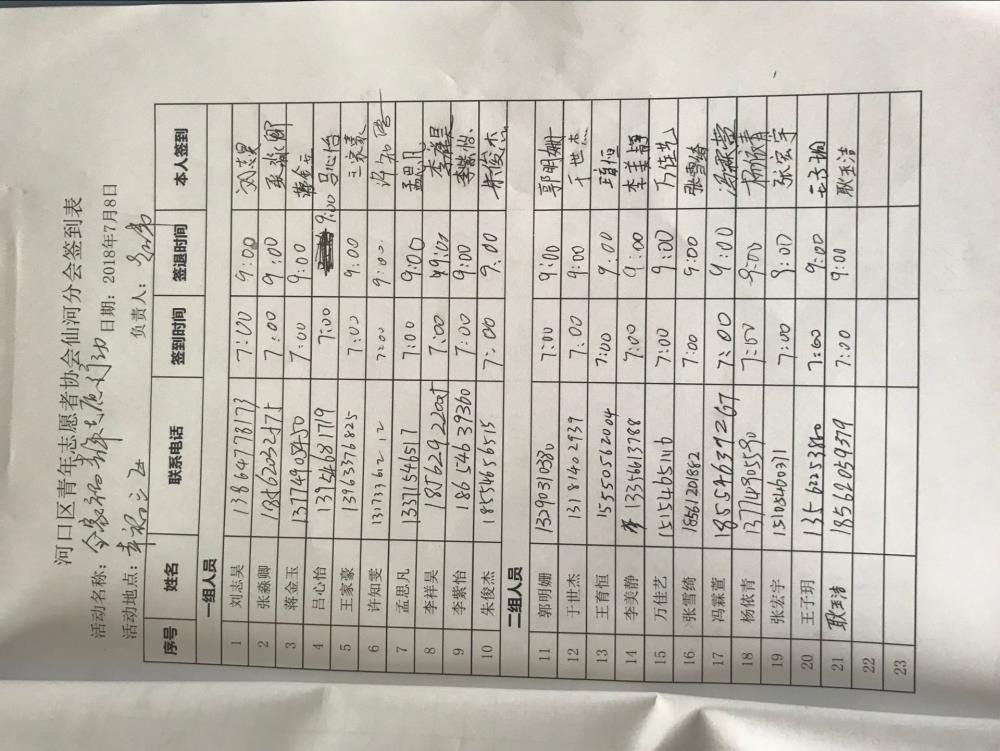 河口区青年志愿者协会仙河分会签到表
活动名称： 日期：2018年7月8日
活动地点：幸福 负责人：
序号 姓名 联系电话 签到时间 签退时间 本人签到
一组人员
1 刘志昊 13864778173 7:00 9:00 刘志昊
2 张淼卿 18562032575 7:00 9:00
3 蒋金玉 13774905450 7:00 9:00 蒋金玉
4 吕心怡 13954681719 7:00 9:00 吕心怡
5 王家豪 13963376825 7:00 9:00 王家豪
6 许知雯 13173361212 7:00 9:00
7 孟思凡 13371545517 7:00 9:00 孟思凡
8 李祥昊 18562922005 7:00 9:00 李祥昊
9 李紫怡 18654639360 7:00 9:00 李紫怡
10 朱俊杰 18554656515 7:00 9:00 朱俊杰
二组人员
11 郭明姗 13290310380 7:00 9:00 郭明姗
12 于世杰 13181402939 7:00 9:00 于世杰
13 王育恒 15550562004 7:00 9:00
14 李美静 13356613788 7:00 9:00 李美静
15 万佳艺 15154651116 7:00 9:00 万佳艺
16 张雪绮 18561201882 7:00 9:00 张雪绮
17 冯霖萱 18554637267 7:00 9:00 冯霖萱
18 杨依青 13774905590 7:00 9:00 杨依青
19 张宏宇 15105460311 7:00 9:00 张宏宇
20 王子玥 13562253860 7:00 9:00 王子玥
21 耿玉洁 18562059379 7:00 9:00 耿玉洁
22
23